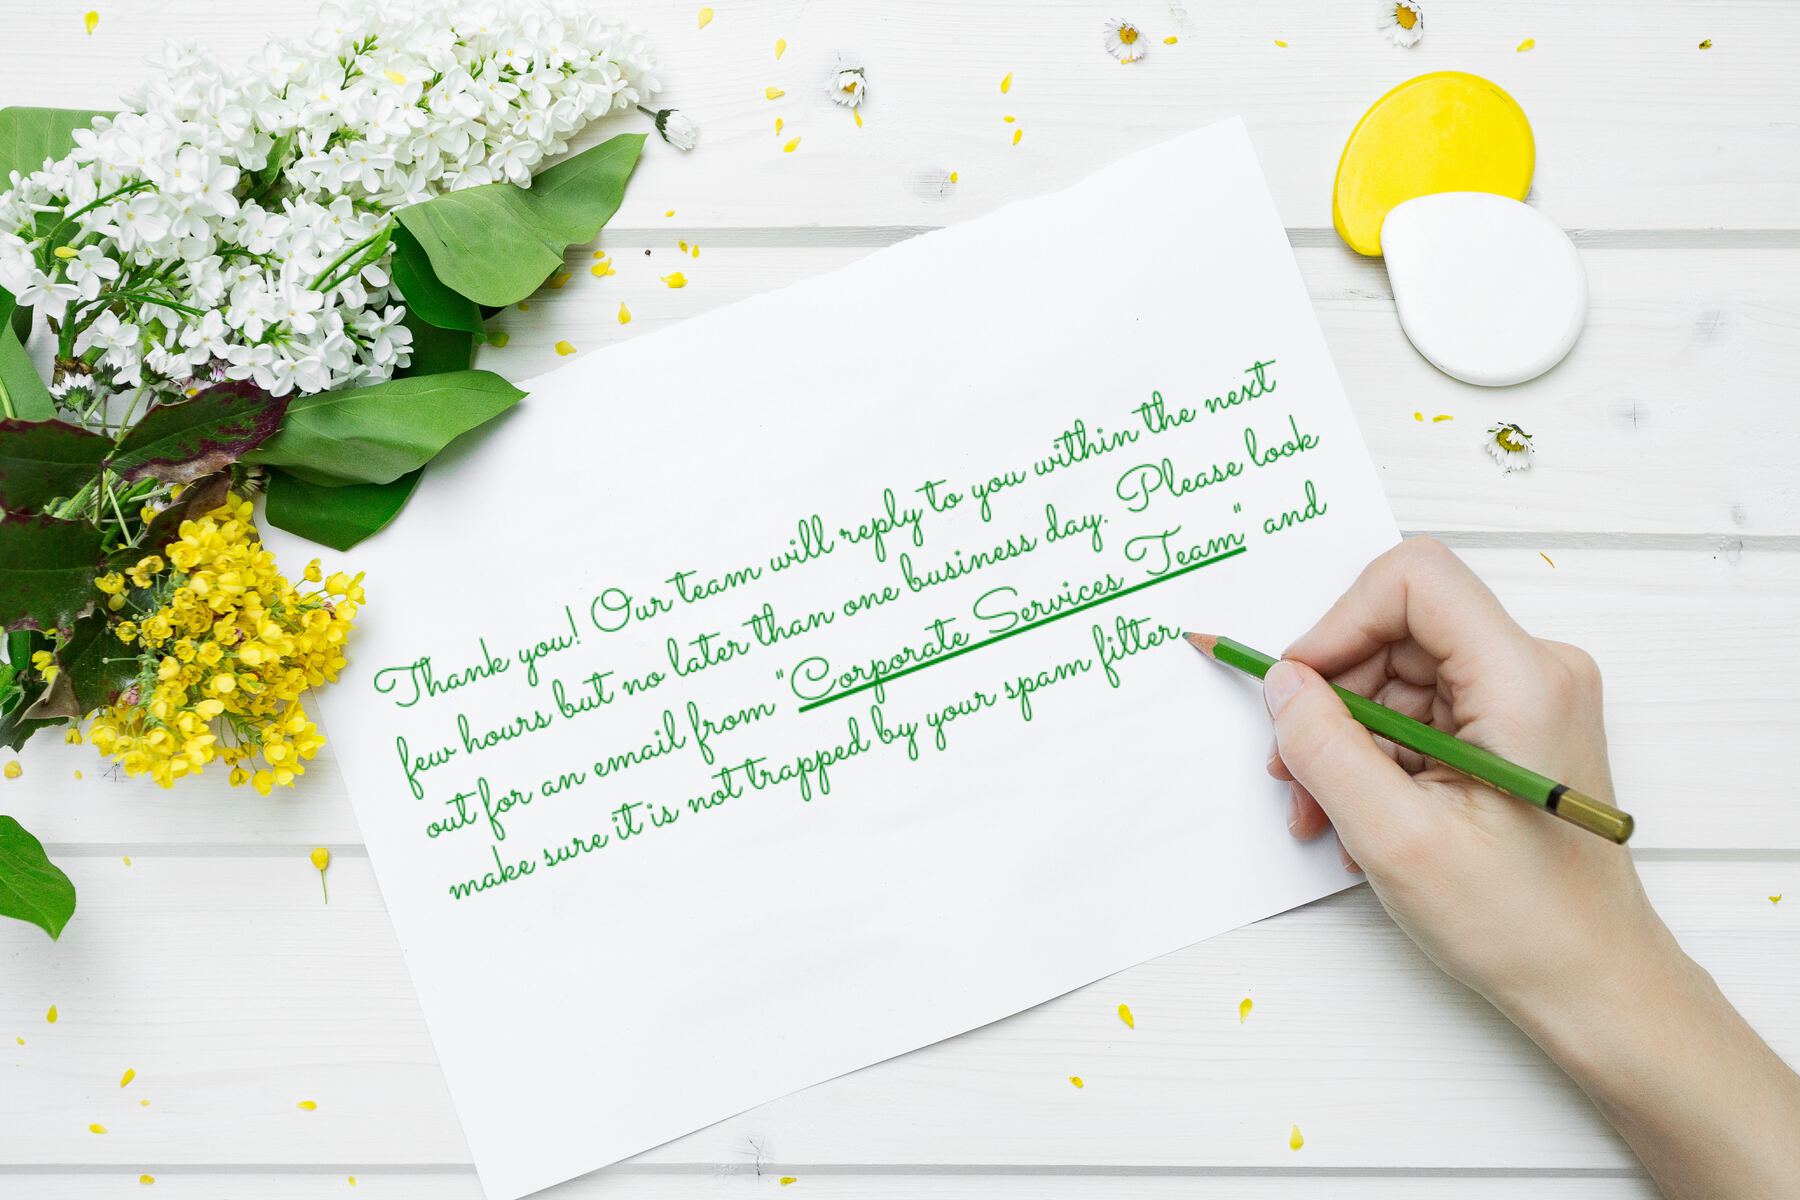 Thank you! Our team will reply to you within the next
few hours but no later than one business day. Please look
out for an email from "Corporate Services Team" and
make sure it is not trapped by your spam filter